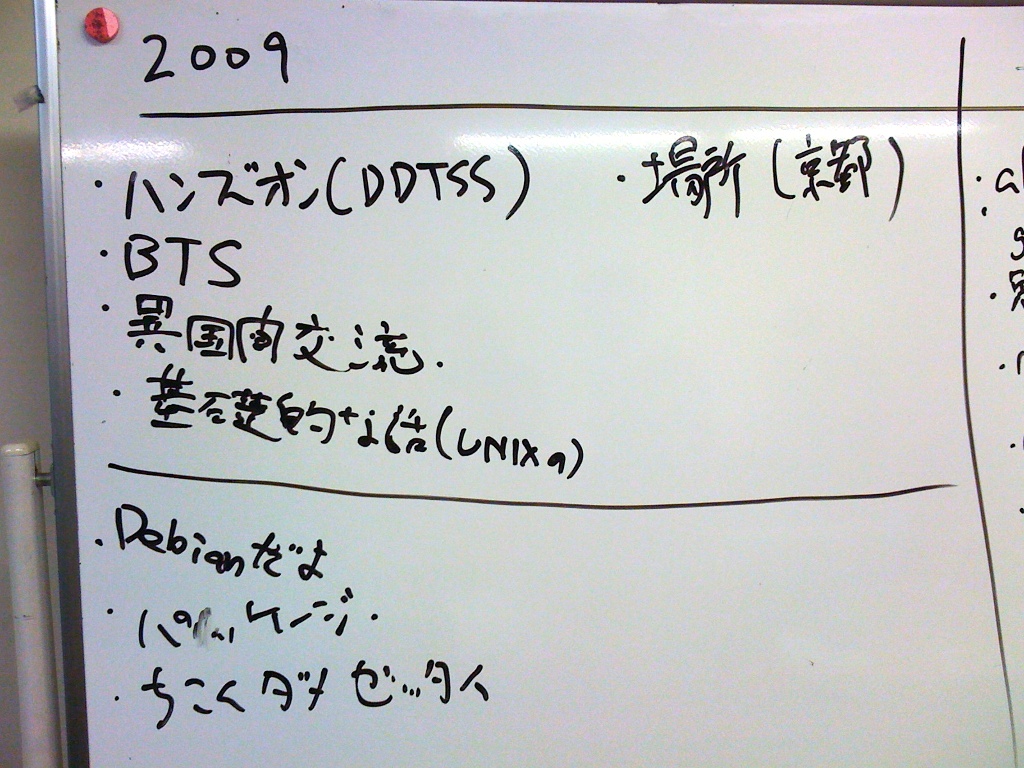 2009
・ハンズオン(DDTSS) ・場所(京都)
・BTS
・異国間交流.
・基礎的な話(UNIXの)
・Debianだよ
・パッケージ.
・ちこくダメ ゼッタイ